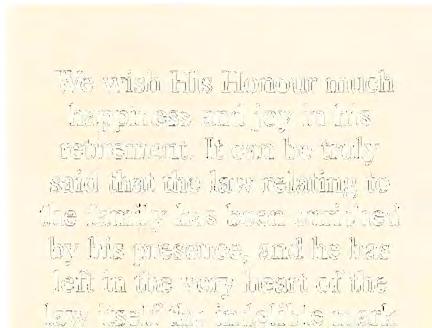 We wish His Honour much
happiness and joy in his
retirement. It can be truly
said that the law relating to
the family has been enriched
by his presence, and he has
left in the very heart of the
law itself the indelible mark